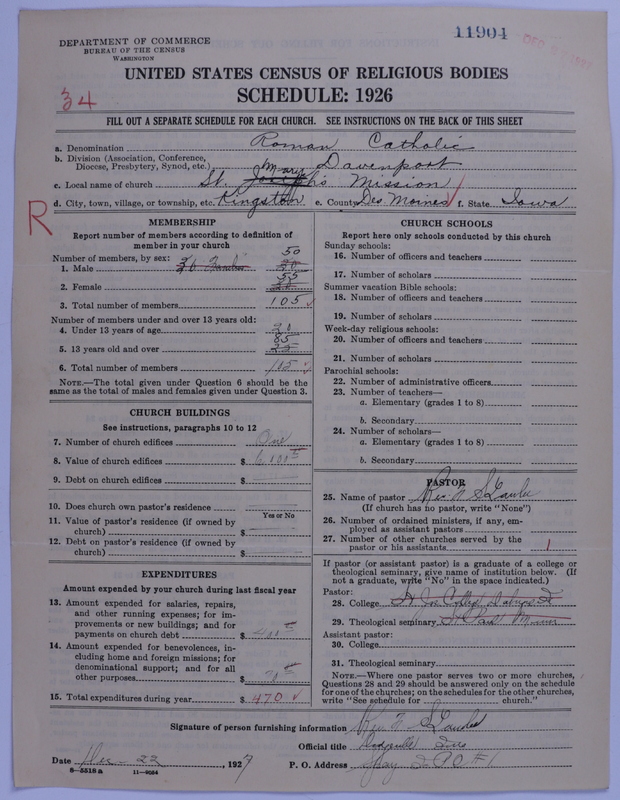 11904
DEPARTMENT OF COMMERCE
BUREAU OF THE CENSUS
WASHINGTON
UNITED STATES CENSUS OF RELIGIOUS BODIES
SCHEDULE: 1926
34
FILL OUT A SEPARATE SCHEDULE FOR EACH CHURCH. SEE INSTRUCTIONS ON THE BACK OF THIS SHEET
a. Denomination Roman Catholic
b. Division (Association, Conference, Diocese, Presbytery, Synod, etc.) Davenport
c. Local name of church St. Mary's Mission
d. City, town, village, or township, etc. Kingston e. County Des Moines f. State Iowa
R
MEMBERSHIP
Report number of members according to definition of member in your church
Number of members, by sex:
1. Male 50
2. Female 55
3. Total number of members 105
Number of members under and over 13 years old:
4. Under 13 years of age 20
5. 13 years old and over 85
6. Total number of members 105
NOTE.—The total given under Question 6 should be the same as the total of males and females given under Question 3.
CHURCH BUILDINGS
See instructions, paragraphs 10 to 12
7. Number of church edifices One
8. Value of church edifices $
9. Debt on church edifices $
10. Does church own pastor's residence
Yes or No
11. Value of pastor's residence (if owned by church) $
12. Debt on pastor's residence (if owned by church) $
EXPENDITURES
Amount expended by your church during last fiscal year
13. Amount expended for salaries, repairs, and other running expenses; for improvements or new buildings; and for payments on church debt $ 400
14. Amount expended for benevolences, including home and foreign missions; for denominational support; and for all other purposes $ 70
15. Total expenditures during year $ 470
CHURCH SCHOOLS
Report here only schools conducted by this church
Sunday schools:
16. Number of officers and teachers
17. Number of scholars
Summer vacation Bible schools:
18. Number of officers and teachers
19. Number of scholars
Week-day religious schools:
20. Number of officers and teachers
21. Number of scholars
Parochial schools:
22. Number of administrative officers
23. Number of teachers—
a. Elementary (grades 1 to 8)
b. Secondary
24. Number of scholars—
a. Elementary (grades 1 to 8)
b. Secondary
PASTOR
25. Name of pastor Rev.
(If church has no pastor, write "None")
26. Number of ordained ministers, if any, employed as assistant pastors
27. Number of other churches served by the pastor or his assistants 1
If pastor (or assistant pastor) is a graduate of a college or theological seminary, give name of institution below. (If not a graduate, write "No" in the space indicated.)
Pastor:
28. College
29. Theological seminary St Paul Minn
Assistant pastor:
30. College
31. Theological seminary
NOTE.—Where one pastor serves two or more churches, Questions 28 and 29 should be answered only on the schedule for one of the churches; on the schedules for the other churches, write "See schedule for church."
Signature of person furnishing information Rev.
Official title
Date Dec 22, 1927 P. O. Address
8-5518a 11-9084